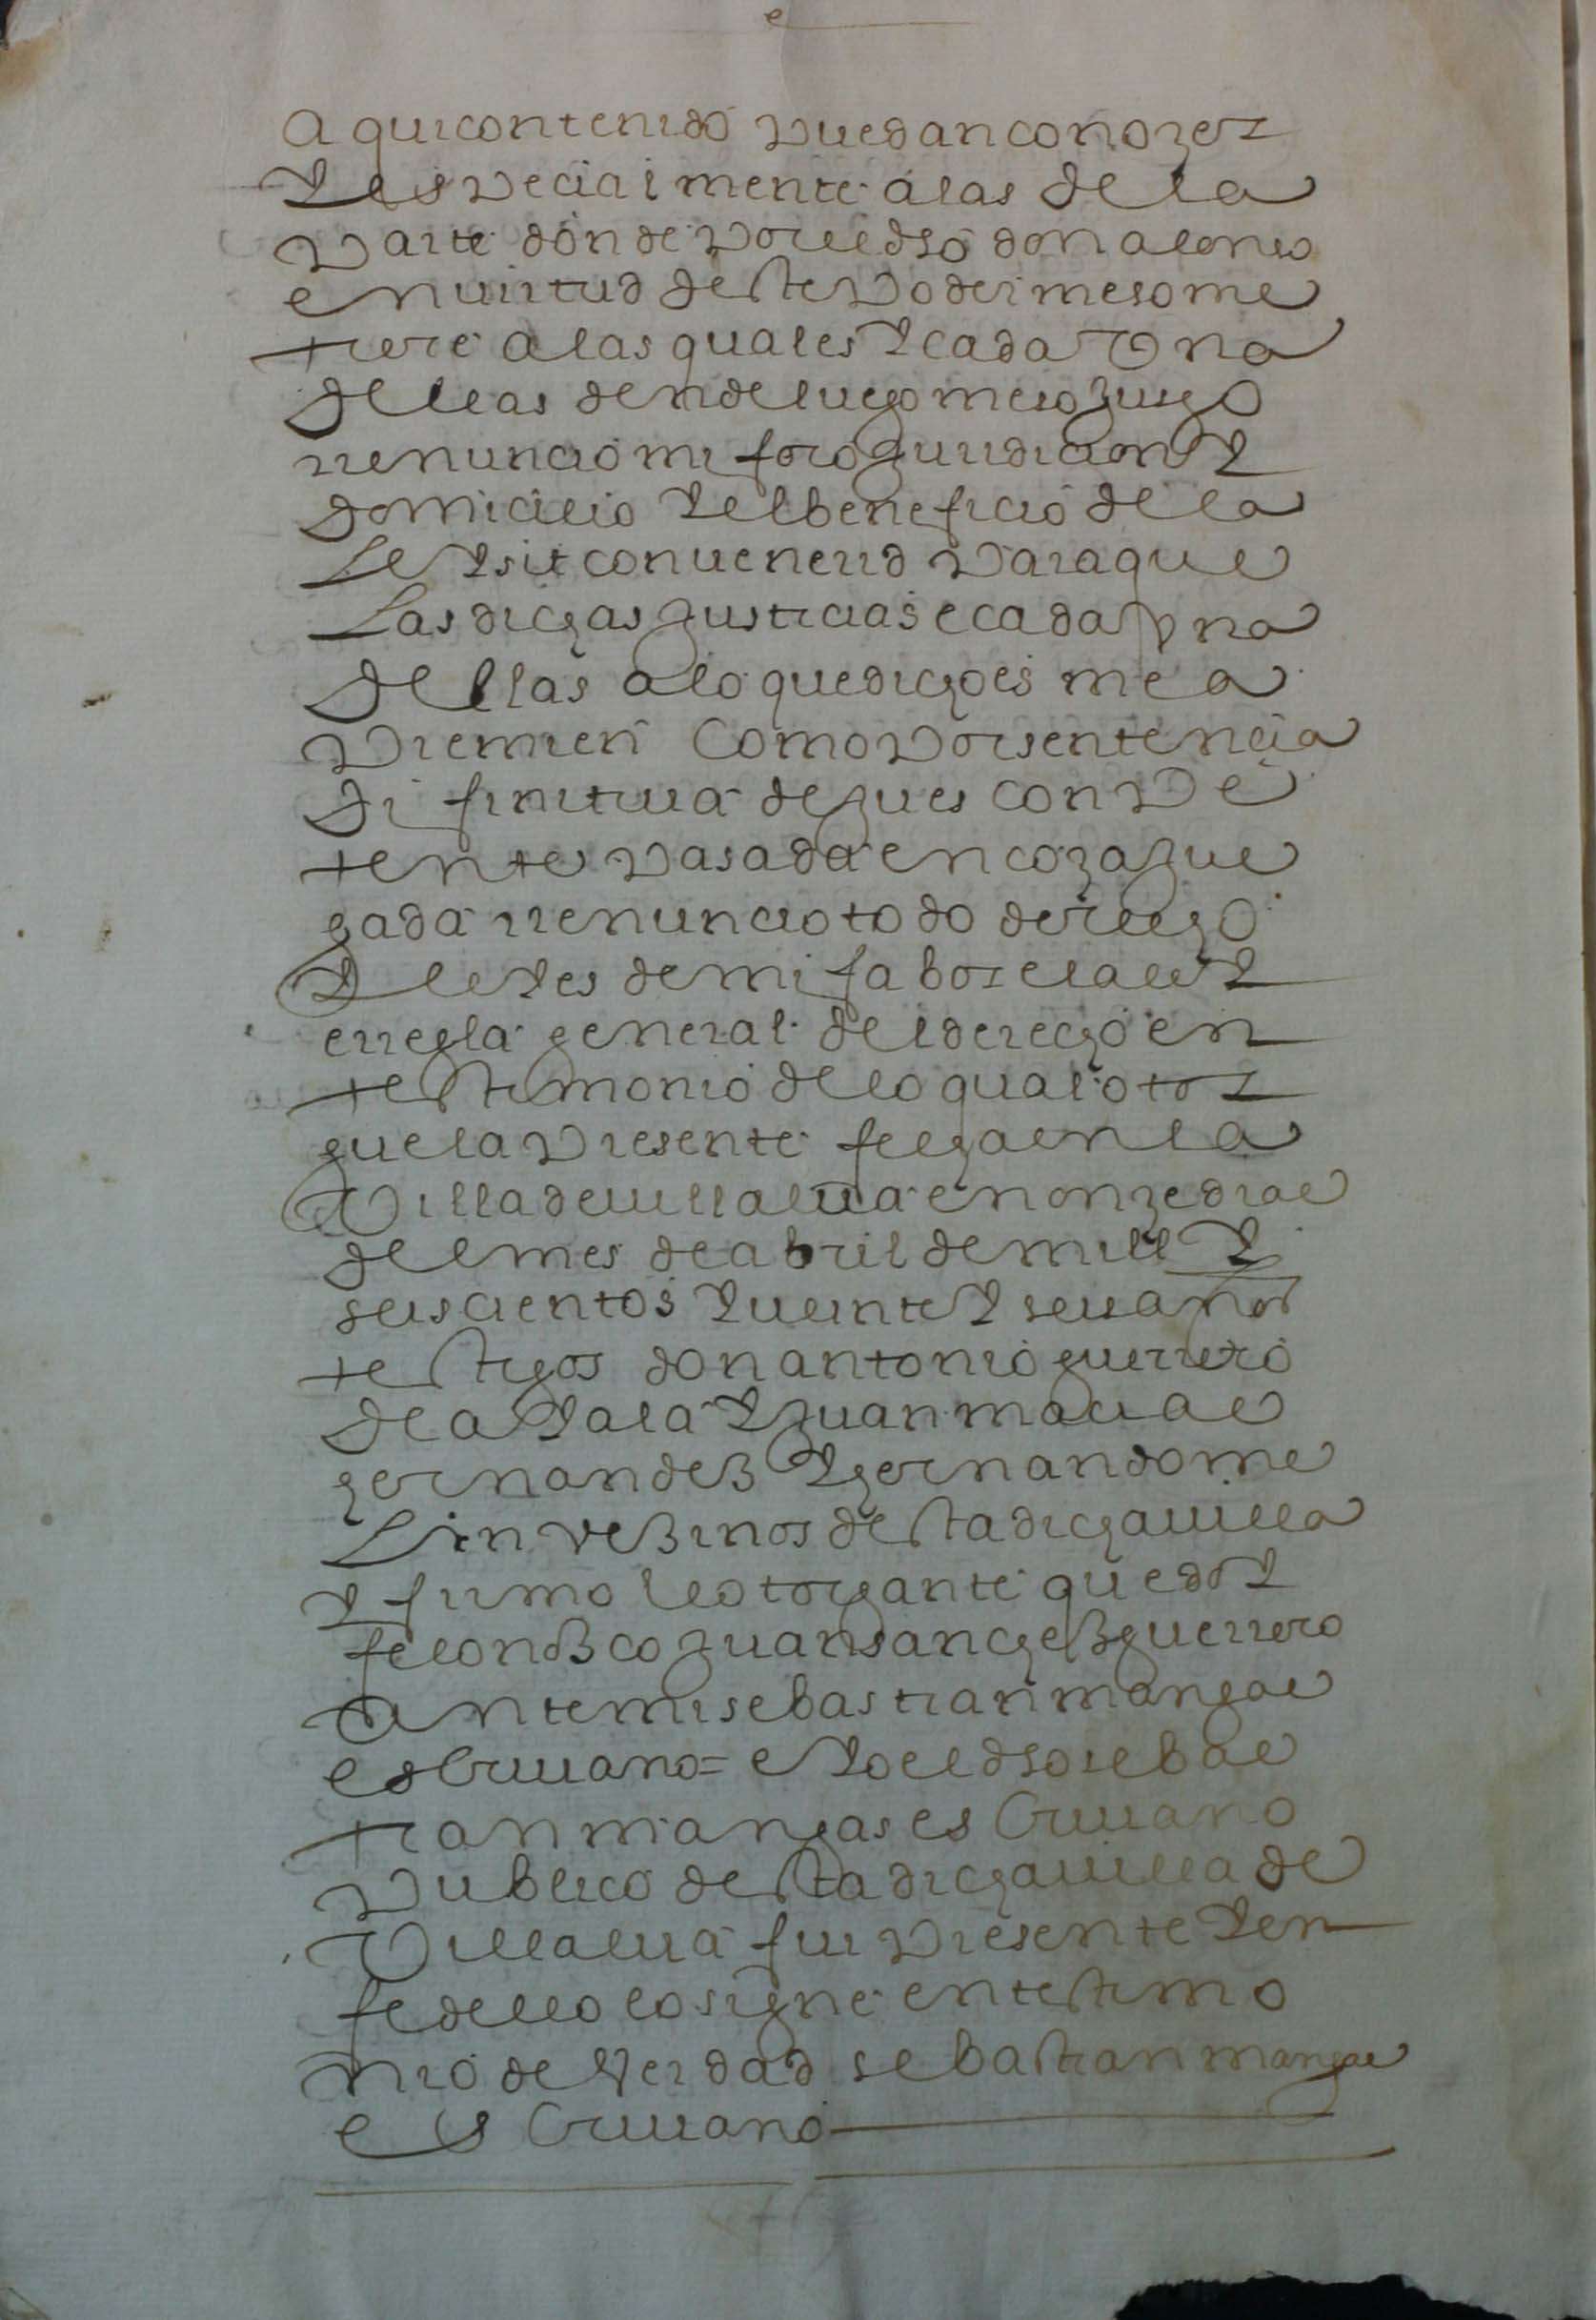 aqui contenido puedan conozer
y espeçialmente a las de la
parte donde por el dho don alonso
en uirtud deste poder me some
tiere a las quales y cada Una
dellas dende luego me sojuzgo
rrenuncio mi foro juridicion y
domicilio y el beneficio de la
ley sit conuenerid para que
las dichas justicias e cada vna
dellas a lo que dicho es me a
premien como por sentencia
difinitiua de jues conpe
tente pasada en coza juz
gada rrenuncio todo derecho
y leyes de mi fabor e la ley
e rregla general del derecho en
testimonio de lo qual otor
gue la presente fecha en la
Villa de uillalua en onze dias
del mes de abril de mill y
seiscientos y ueinte y seis años
testigos don antonio guerrero
de ayala y juan macias
hernandez y hernando me
lin vezinos desta dicha uilla
y firmo el otorgante que doy
fe conozco juan sanchez guerrero
ante mi sebastian mangas
escriuano = e yo el dho sebas
tian mangas escriuano
publico desta dicha uilla de
Villalua fui presente y en
fe dello lo signe en testimo
nio de verdad sebastian mangas
escriuano